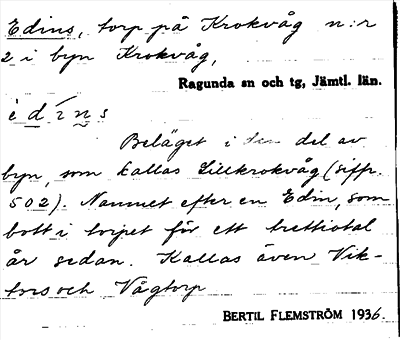 Edins, torp på Krokvåg n:r
2 i byn Krokvåg,
Ragunda sn och tg, Jämtl. län.
èdíns
Beläget i den del av
byn, som kallas Lillkrokvåg (siffr.
502). Namnet efter en Edin, som
bott i torpet för ett trettiotal
år sedan. Kallas även Vik-
tors och Vågtorp
BERTIL FLEMSTRÖM 1936.